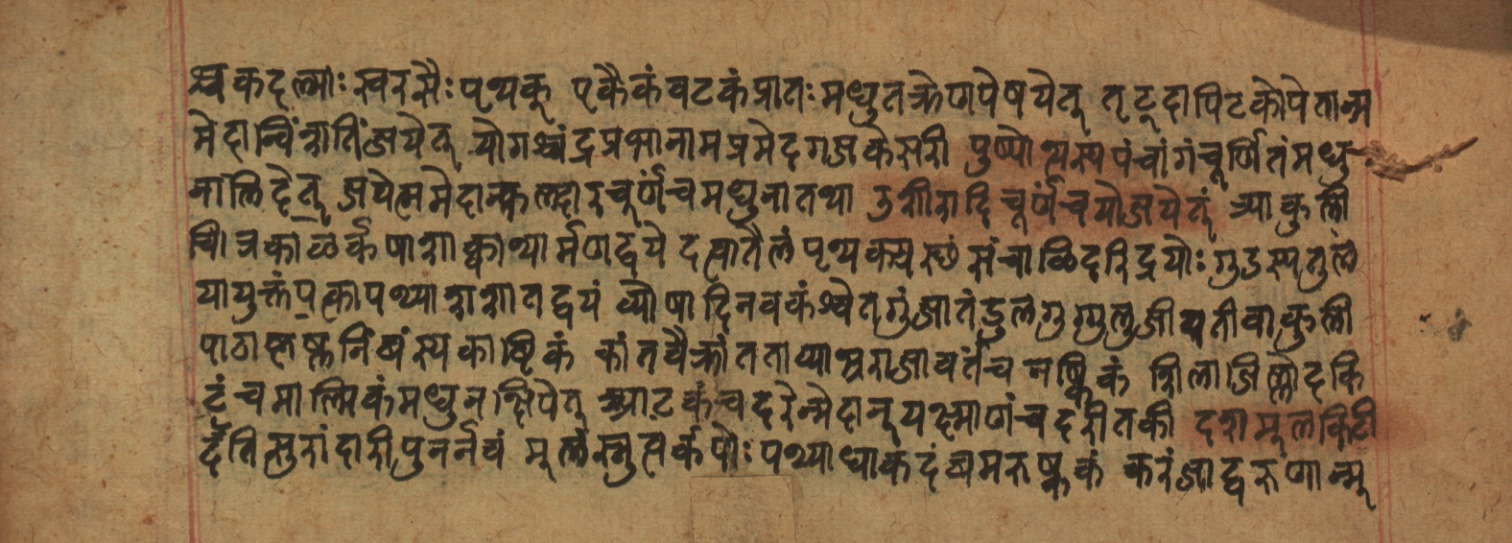 श्वकदल्याः स्वरसैः पृथक् एकैकं वटकं प्रातः मधुतक्रेण पेषयेत् तृट् दापिटकोपेतान्म
मेहान्विंशतिं जयेत् योगश्चंद्रप्रभानाम प्रमेहगजकेसरी पुष्पोत्थस्य पंचांगं चूर्णितं मधु
नालिहेत् जयेत्प्रमेहान्फलदारुचूर्णं च मधुना तथा उशीरादि चूर्णं च योजयेत् व्याकुली
चित्रकाढर्क पाशा क्वाथ्यार्मणद्वये दत्वा तैलं पृथक्प्रस्थं सं चाळिदरिद्रयोः गुडस्य तुलं
यायुक्तं पक्त्वा पथ्याशाशातद्वयं व्योषादि नवकं श्वेतगुंजातंडुलगुग्गुलुजीवतीवाकुली
पाठाकुष्ठनिंबंस्य कार्षिकं कांतवैक्रांतताप्याभ्रराजावर्तं च नष्किकं शिलाजिल्लोहकि
टं च माल्मिकं मधुन क्षिपेत् आटकं च हरेन्मेहान् यक्ष्माणं च हरीतकी दशमूलकिटी
दंतिसुरांदारीपुनर्नवं मूलंस्नुत्यर्कयोः पथ्याधाकदंबमरुष्ककं करंजाद्वरुणान्मू